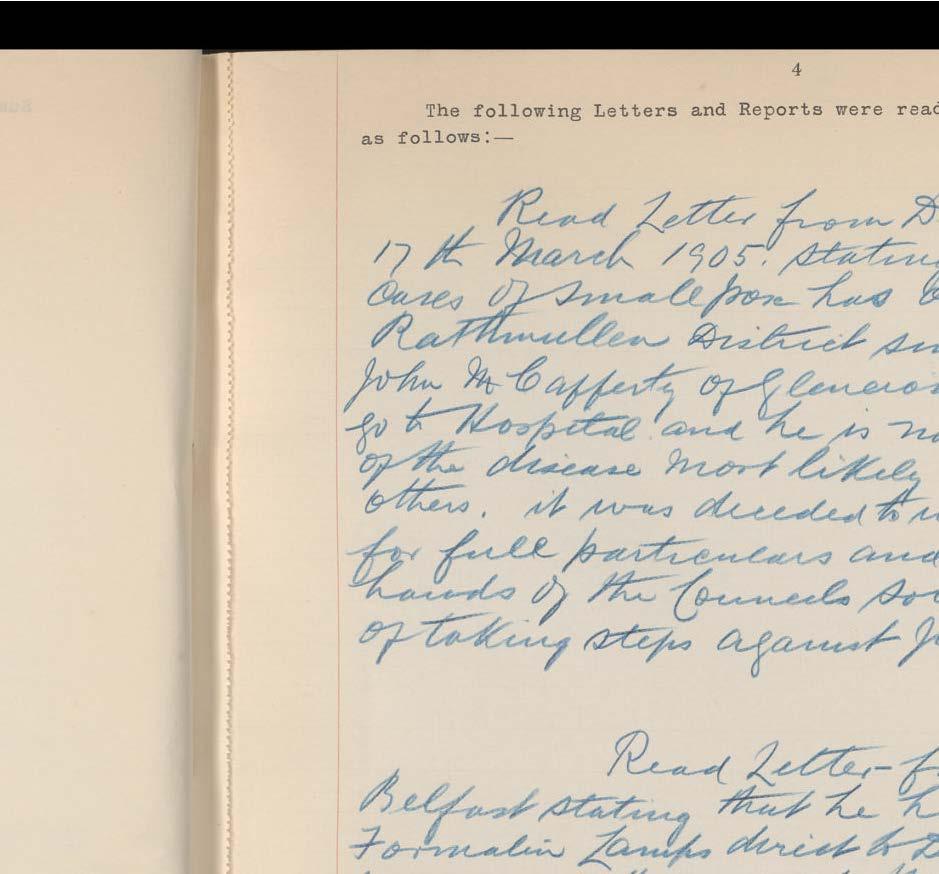 4
The following Letters and Reports were read
as follows:—
Read Letter from D
17th March 1905. stating
Cases of Small pox has
Rathmullen District
John McCafferty of
go to Hospital and he is
of the disease most likely
others. it was decided to
for full particulars and
hands of the Councils
of taking steps against
Read Letter
Belfast stating that he
Formalin Lamps direct to